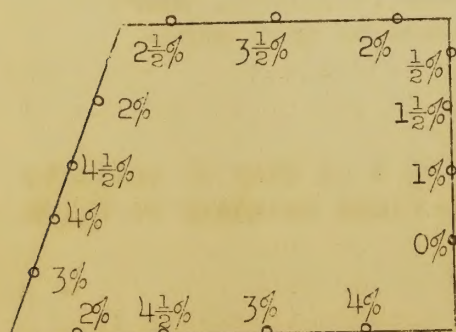 2½% 3½% 2%
½%
2% 1½%
4½% 1%
4%
0%
3%
2% 4½% 3% 4%